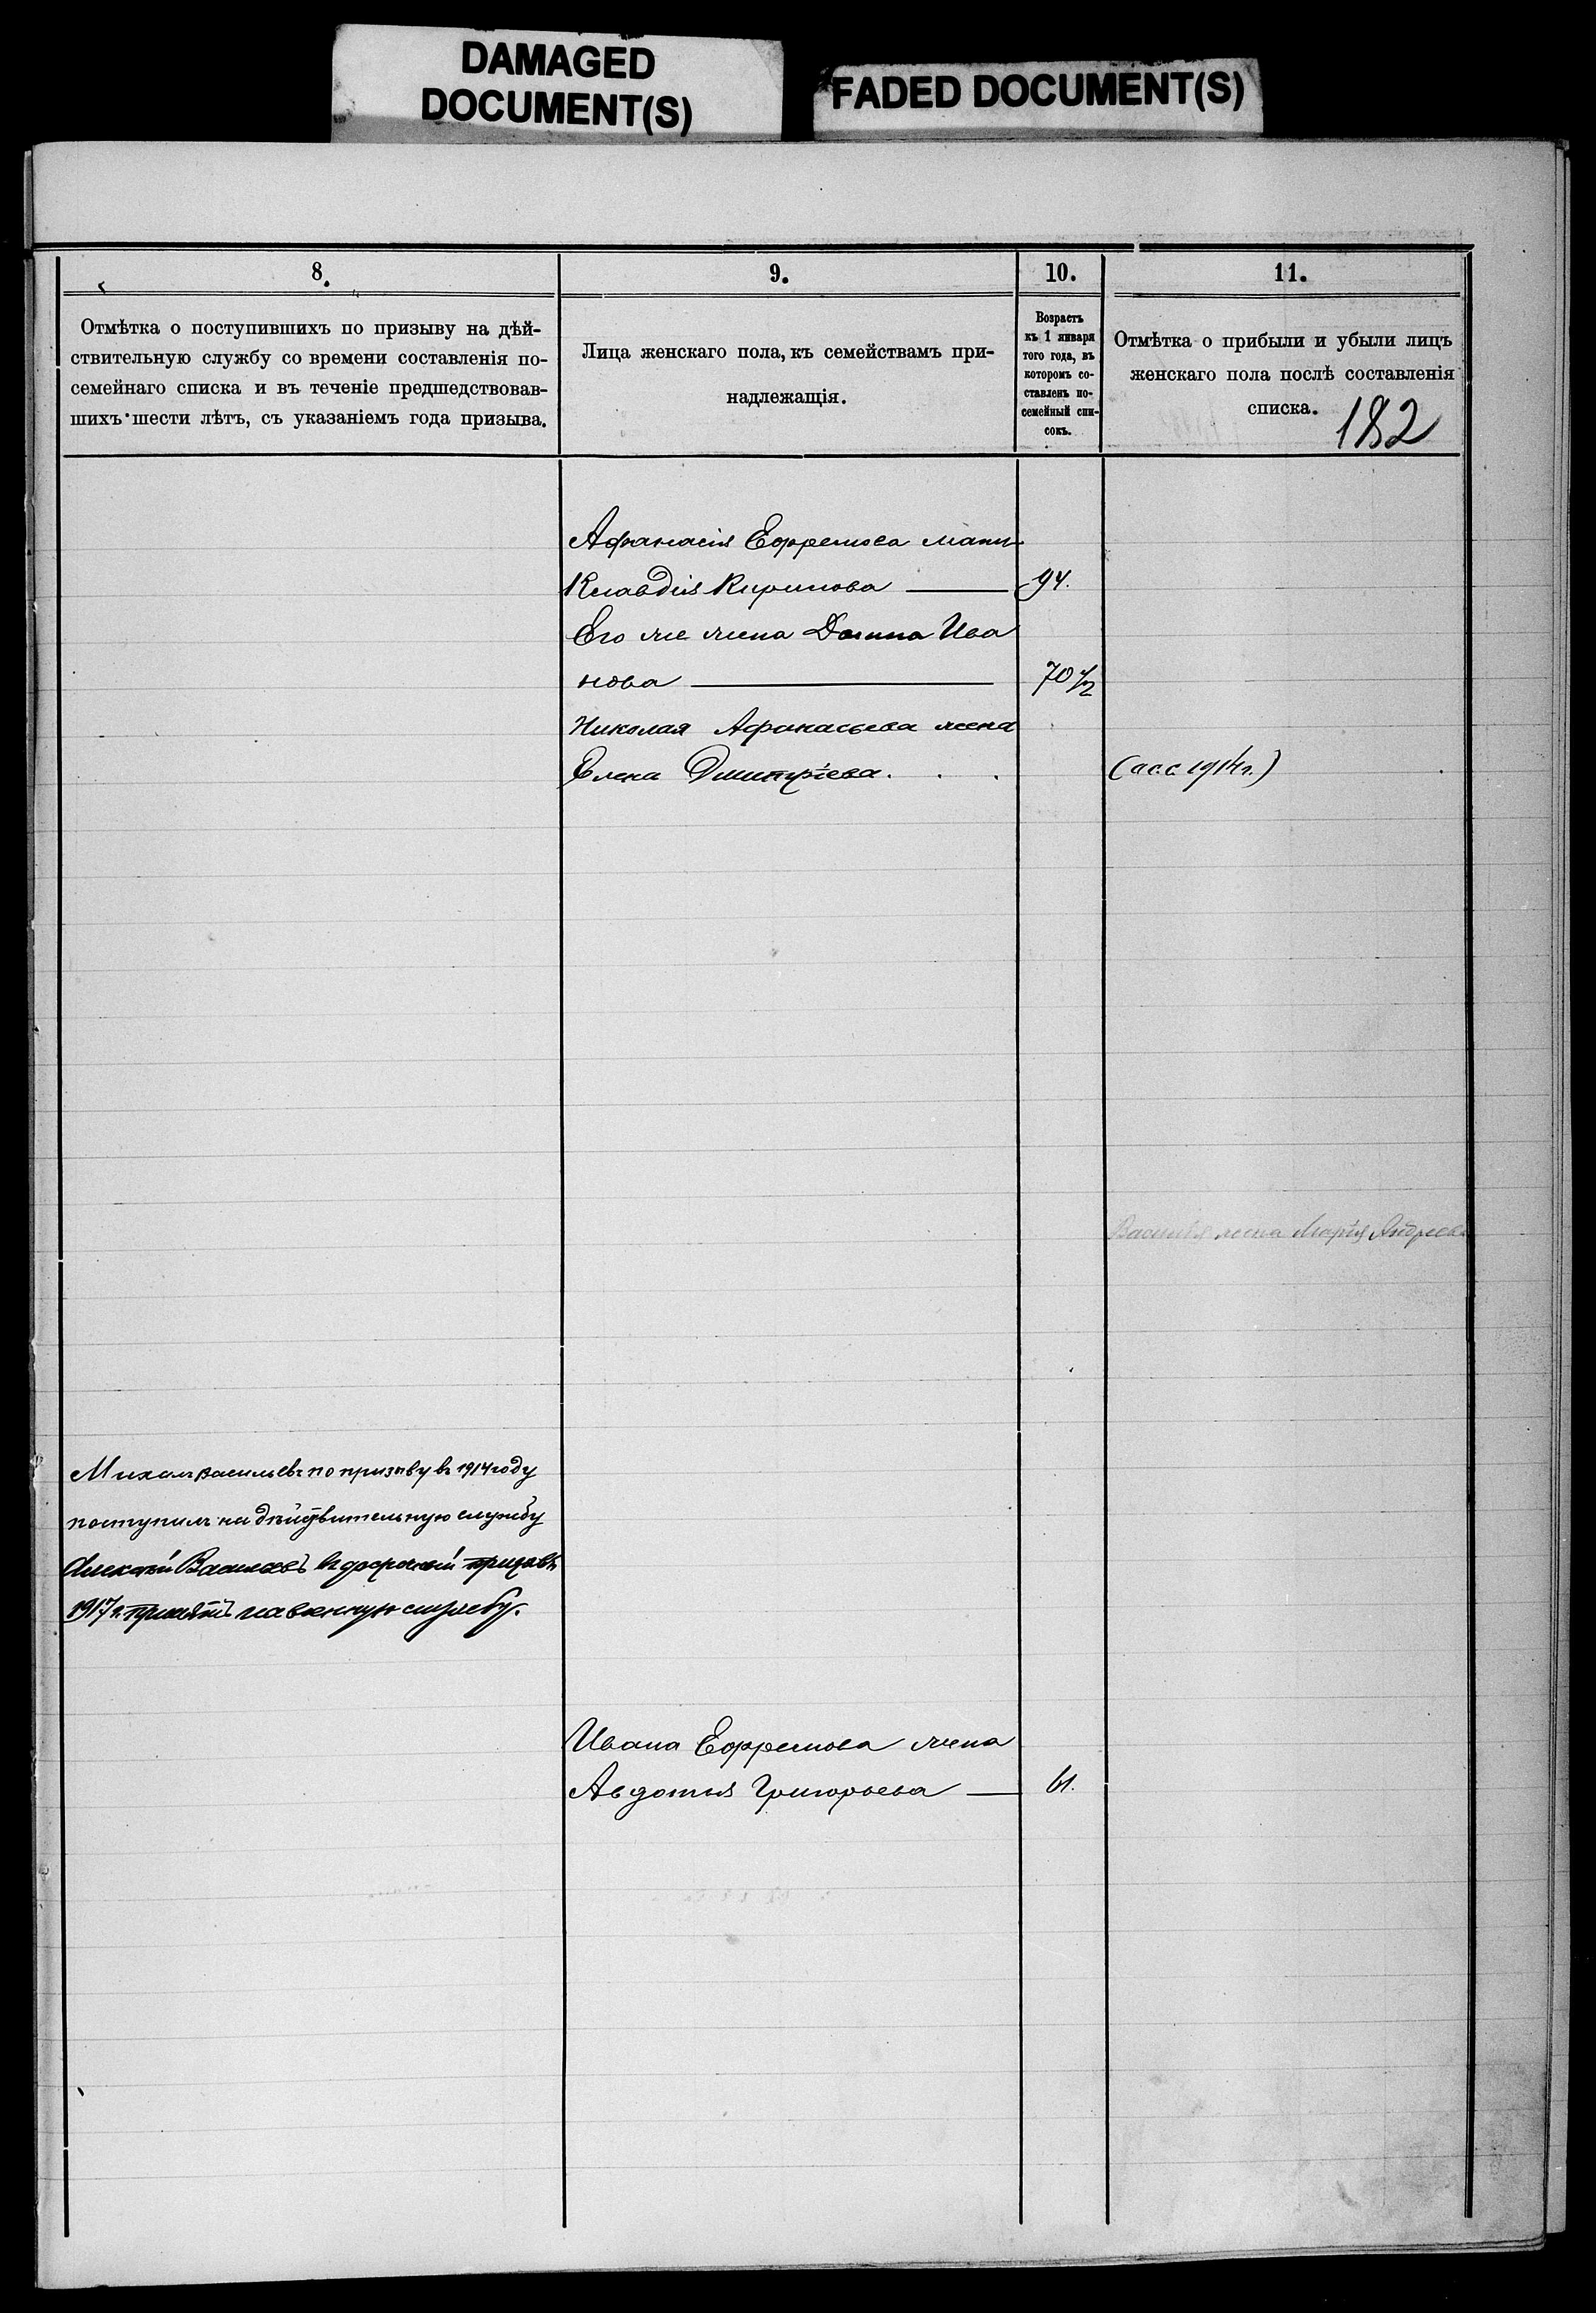 DAMAGED
DOCUMENT(S)
FADED DOCUMENT(S)
8.
9.
10.
11.
Отмѣтка о поступившихъ по призыву на дѣй-
ствительную службу со времени составленія по-
семейнаго списка и въ теченіе предшедствовав-
шихъ шести лѣтъ, съ указаніемъ года призыва.
Лица женскаго пола, къ семействамъ при-
надлежащія.
Возрастъ
къ 1 января
того года, въ
которомъ со-
ставленъ по-
семейный спи-
сокъ.
Отмѣтка о прибыли и убыли лицъ
женскаго пола послѣ составленія
списка.
182
Афанасія Ефремова мать
Клавдія Кирилова 94.
Его же жена Домна Ива
нова 70 1/2
Николая Афонасьева жена
Елена Дмитріева. . . (а.с.с. 1914 г.)
Василья жена Марія Андреева
Михаил Васильевъ по призыву въ 1914 году
поступилъ на дѣйствительную службу
Алексѣй Васильевъ въ досрочный призывъ
1917 г. принятъ на военную службу.
Ивана Ефремова жена
Авдотья Григорьева 61.